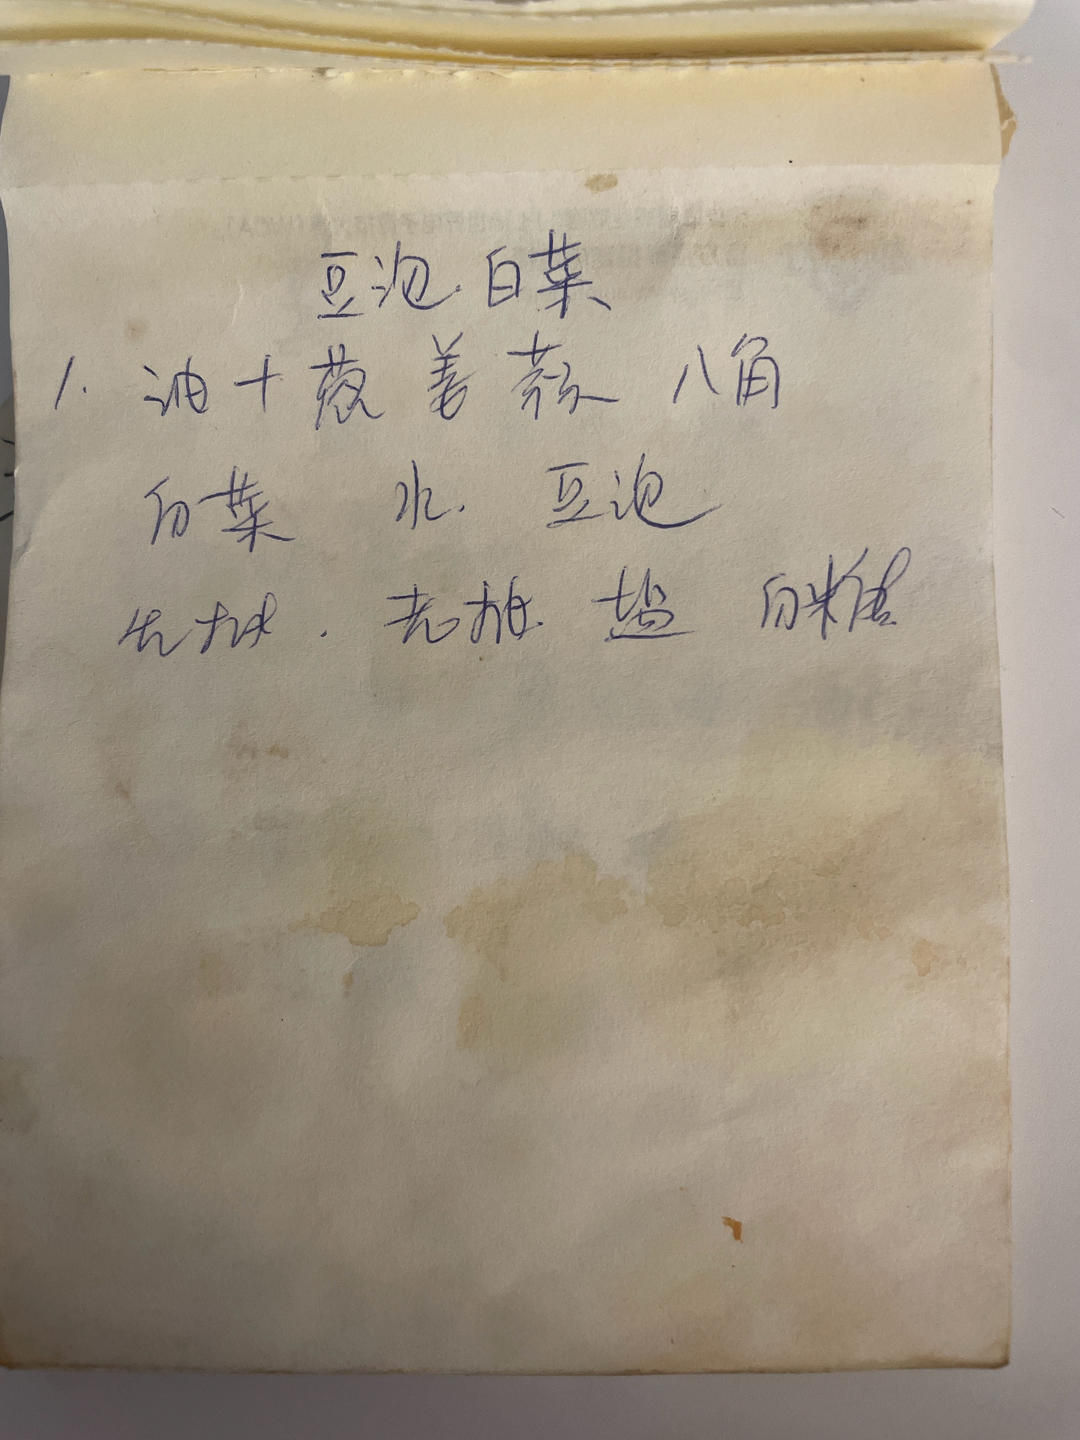 豆泡白菜
1. 油+葱 姜 蒜 八角
白菜 水. 豆泡
生抽. 老抽 盐 白糖